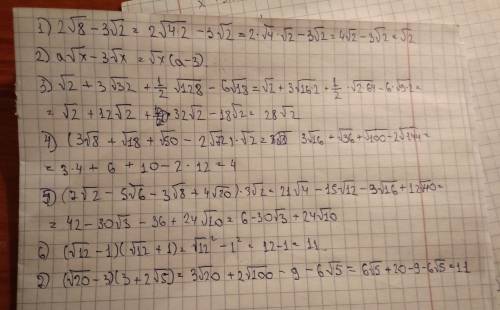 1) 2√8 − 3√2 = 2√(4·2) − 3√2 = 2·√4·√2 − 3√2 = 4√2 − 3√2 = √2
2) a√x − 3√x = √x(a−3).
3) √2 + 3√32 + ½√128 − 6√18 = √2 + 3√(16·2) + ½·√(2·64) − 6·√(9·2) =
= √2 + 12√2 + 32√2 − 18√2 = 28√2
4) (3√8 + √18 + √50 − 2√72)·√2 = 3√16 + √36 + √100 − 2√144 =
= 3·4 + 6 + 10 − 2·12 = 4
5) (7√2 − 5√6 − 3√8 + 4√20)·3√2 = 21√4 − 15√12 − 3√16 + 12√40 =
= 42 − 30√3 − 36 + 24√10 = 6 − 30√3 + 24√10
6) (√12 − 1)(√12 + 1) = √12² − 1² = 12 − 1 = 11
7) (√20 − 3)(3 + 2√5) = 3√20 + 2√100 − 9 − 6√5 = 6√5 + 20 − 9 − 6√5 = 11